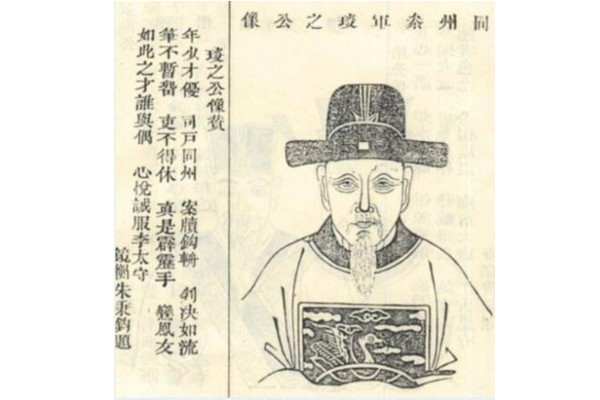 同州叅軍琰之公像
琰之公像贊
年少才優 司戸同州 案牘鈎輈 判決如流
筆不暫畱 吏不得休 真是霹靂手 鸞鳳友
如此之才誰與偶 心悅誠服李太守
鏡湖朱秉鈞題